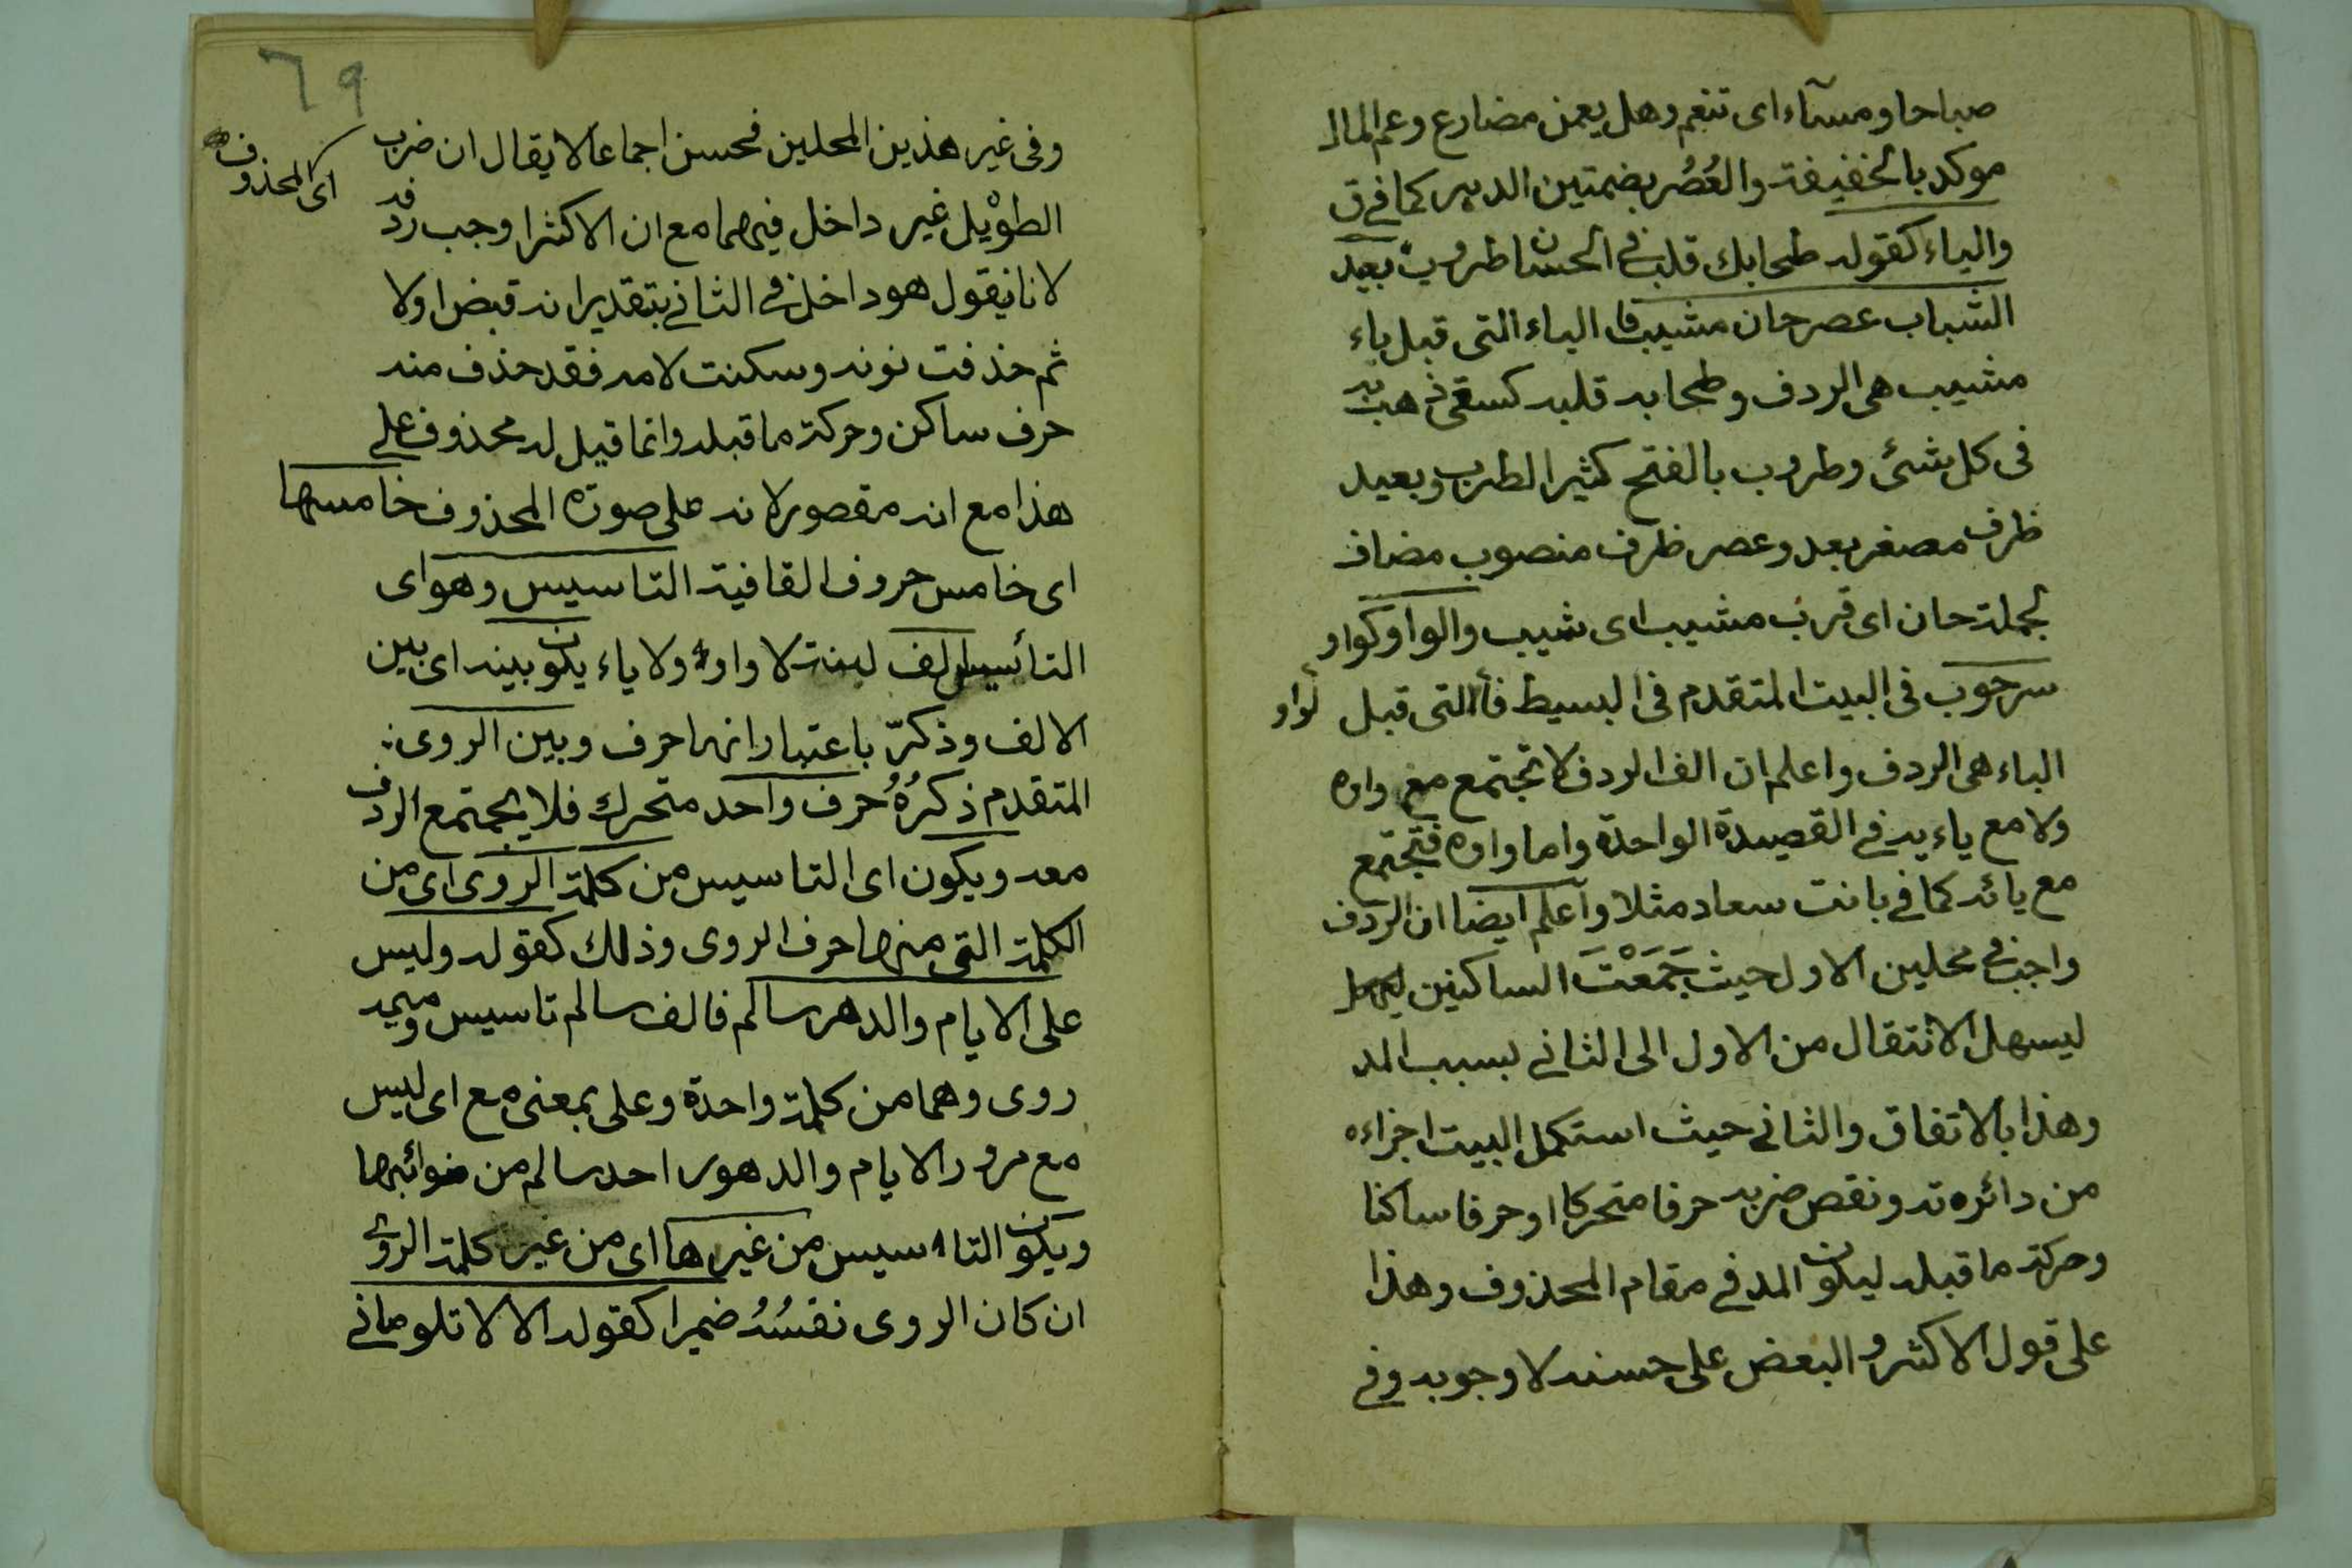 صباحا ومسآء اى تنعم وهل يعمن مضارع وعم المال
موكد بالخفيفة والعُصُر بضمتين الدهر كما فى ق
والياء كقوله طحا بك قلب فى الحسان طروب بعيد
الشباب عصر حان مشيب فا الياء التى قبل باء
مشيب هى الردف وطحا به قلبه كسقى ذهب به
فى كل شئ وطروب بالفتح كثير الطرب وبعيد
ظرف مصغر بعد وعصر ظرف منصوب مضاف
لجملة حان اى قرب مشيب اى شيب والواو كواو
سرحوب فى البيت المتقدم فى البسيط فا التى قبل
لواو
الباء هى الردف واعلم ان الف الردف لا تجتمع مع واوه
ولا مع ياءيه فى القصيدة الواحدة واما واوه فتجتمع
مع يائه كما فى بانت سعاد مثلا وآعلم ايضا ان الردف
واجب فى محلين الاول حيث جَمَعْتَ الساكنين
ليسهل الانتقال من الاول الى الثانى بسبب المد
وهذا بالاتفاق والثانى حيث استكمل البيت اجزاءه
من دائره ته ونقص ضربه حرفا متحركا او حرفا ساكنا
وحركة ما قبله ليكون المد فى مقام المحذوف وهذا
على قول الاكثر والبعض على حسنه لا وجوبه وفى
٦٩
وفى غير هذين المحلين فحسن اجماعا لا يقال ان ضرب
اى المحذوف
الطوْيل غير داخل فيهما مع ان الاكثر اوجب ردفه
لانا نقول هو داخل فى الثانى بتقدير انه قبض اولا
ثم حذفت نونه وسكنت لامه فقد حذف منه
حرف ساكن وحركة ما قبله وانما قيل له محذوف على
هذا مع انه مقصور لانه على صوته المحذوف خامسها
اى خامس حروف القافية التاسيس وهو اى
التأسيس الف لينة لا واو ولا ياء يكون بينه اى بين
الالف وذكرّ باعتبار انها حرف وبين الروى
المتقدم ذكرُهُ حرف واحد متحرك فلا يجتمع الردف
معه ويكون اى التاسيس من كلمة الروى اى من
الكلمة التى منها حرف الروى وذلك كقوله وليس
على الايام والدهر سالم فالف سالم تاسيس وميمه
روى وهما من كلمة واحدة وعلى بمعنى مع اى ليس
مع مرور الايام والدهور احد سالم من نوائبها
ويكون التاسيس من غيرها اى من غير كلمة الروى
ان كان الروى نفسُهُ ضميرا كقوله الا لا تلومانى